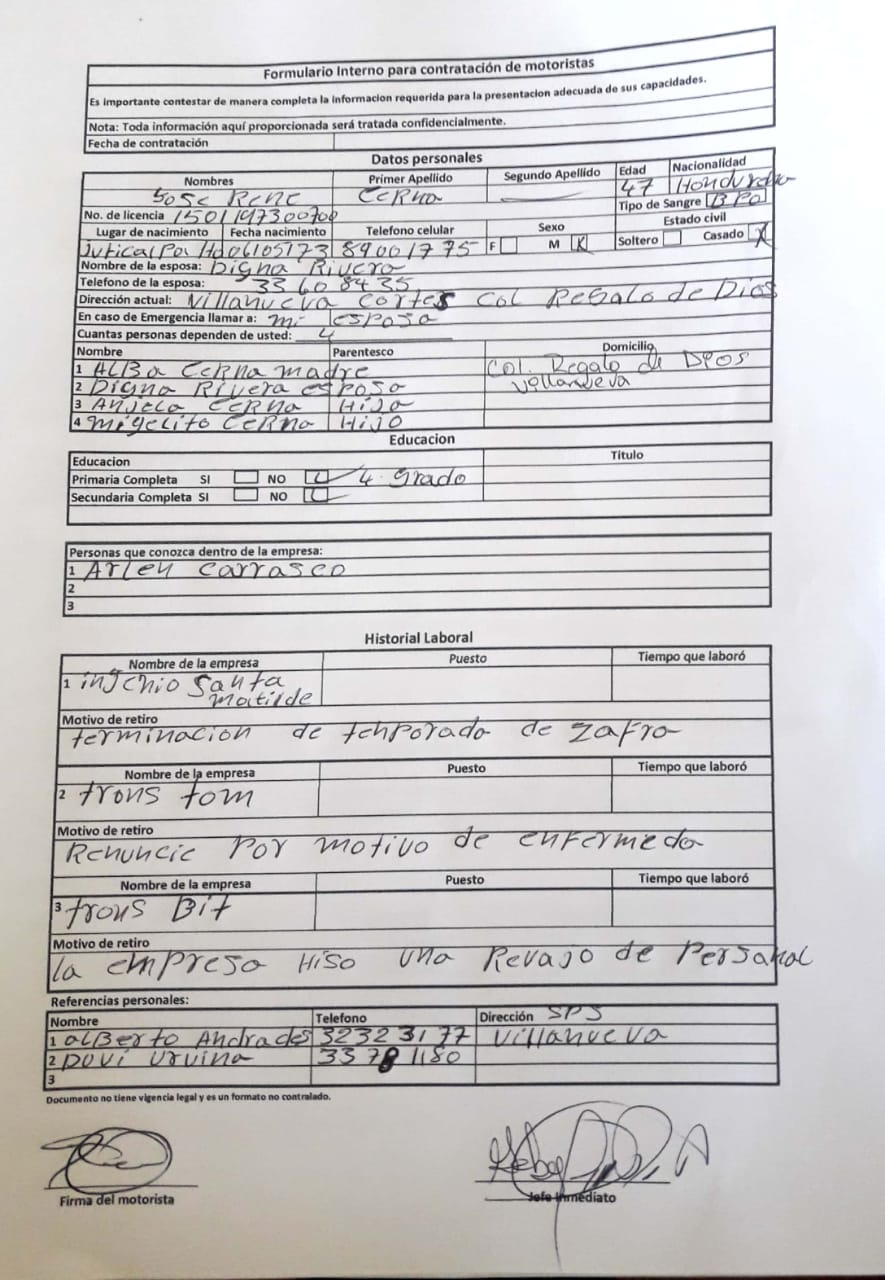 Formulario Interno para contratación de motoristas
Es importante contestar de manera completa la informacion requerida para la presentacion adecuada de sus capacidades.
Nota: Toda información aquí proporcionada será tratada confidencialmente.
Fecha de contratación
Datos personales
Nombres Primer Apellido Segundo Apellido Edad Nacionalidad
Jose Rene Cerna 47 Hondureño
No. de licencia 1501197300700 Tipo de Sangre B PO
Lugar de nacimiento Fecha nacimiento Telefono celular Sexo Estado civil
Juticalpa 06/05/73 89001775 F M X Soltero Casado X
Nombre de la esposa: Digna Rivera
Telefono de la esposa: 33608435
Dirección actual: Villanueva Cortes Col Regalo de Dios
En caso de Emergencia llamar a: mi esposa
Cuantas personas dependen de usted: 4
Nombre Parentesco Domicilio
1 Alba Cerna madre Col. Regalo de Dios
2 Digna Rivera esposa Villanueva
3 Anjela Cerna Hija
4 Migelito Cerna Hijo
Educacion
Educacion Título
Primaria Completa SI NO 4 Grado
Secundaria Completa SI NO
Personas que conozca dentro de la empresa:
1 Arlen Carrasco
2
3
Historial Laboral
Nombre de la empresa Puesto Tiempo que laboró
1 injenio Santa
Matilde
Motivo de retiro
terminacion de temporada de Zafra
Nombre de la empresa Puesto Tiempo que laboró
2 trans tom
Motivo de retiro
Renuncie Por motivo de enfermeda
Nombre de la empresa Puesto Tiempo que laboró
3 trans Bit
Motivo de retiro
la empresa Hiso una Revajo de Personal
Referencias personales:
Nombre Telefono Dirección SPS
1 alberto Andrades 32323177 Villanueva
2 Davi Urvina 33781180
3
Documento no tiene vigencia legal y es un formato no contralado.
Firma del motorista Jefe Inmediato